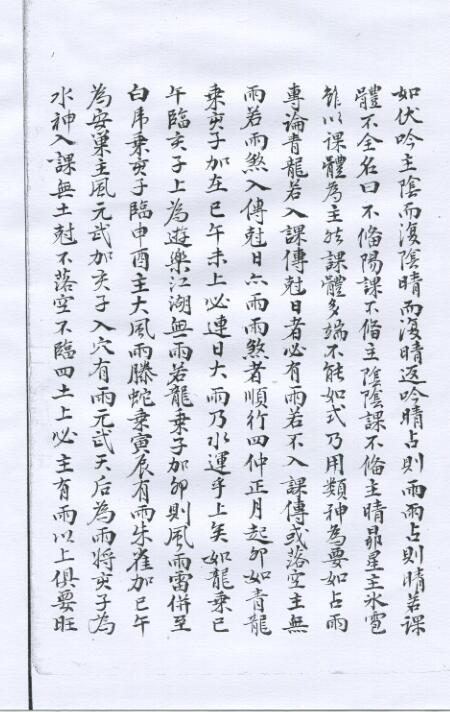 如伏吟主陰而復陰晴而復晴返吟晴占則雨雨占則晴若課
體不全名曰不俻陽課不俻主陰陰課不俻主晴昴星主氷雹
雖以課體為主然課體多端不能如式乃用類神為要如占雨
專論青龍若入課傳尅日者必有雨若不入課傳或落空主無
雨若雨煞入傳尅日亦雨雨煞者順行四仲正月起卯如青龍
乘亥子加在巳午未上必連日大雨乃水運乎上矣如龍乘巳
午臨亥子上為遊樂江湖無雨若龍乘子加卯則風雨雷併至
白虎乘亥子臨申酉主大風雨螣蛇乘寅辰有雨朱雀加巳午
為安巢主風元武加亥子入穴有雨元武天后為雨將亥子為
水神入課無土尅不落空不臨四土上必主有雨以上俱要旺